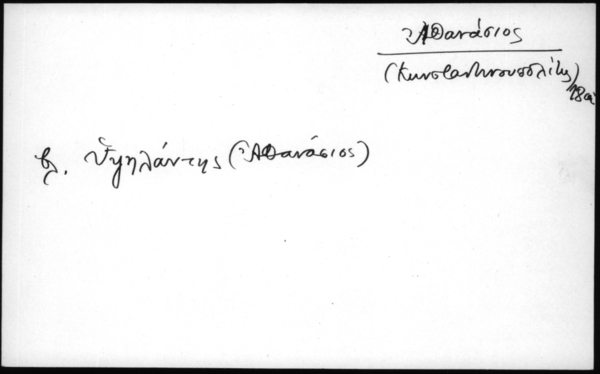 Ἀθανάσιος
(Κωνσταντινουπολίτης)
18ος
βλ. Ὑψηλάντης (Ἀθανάσιος)